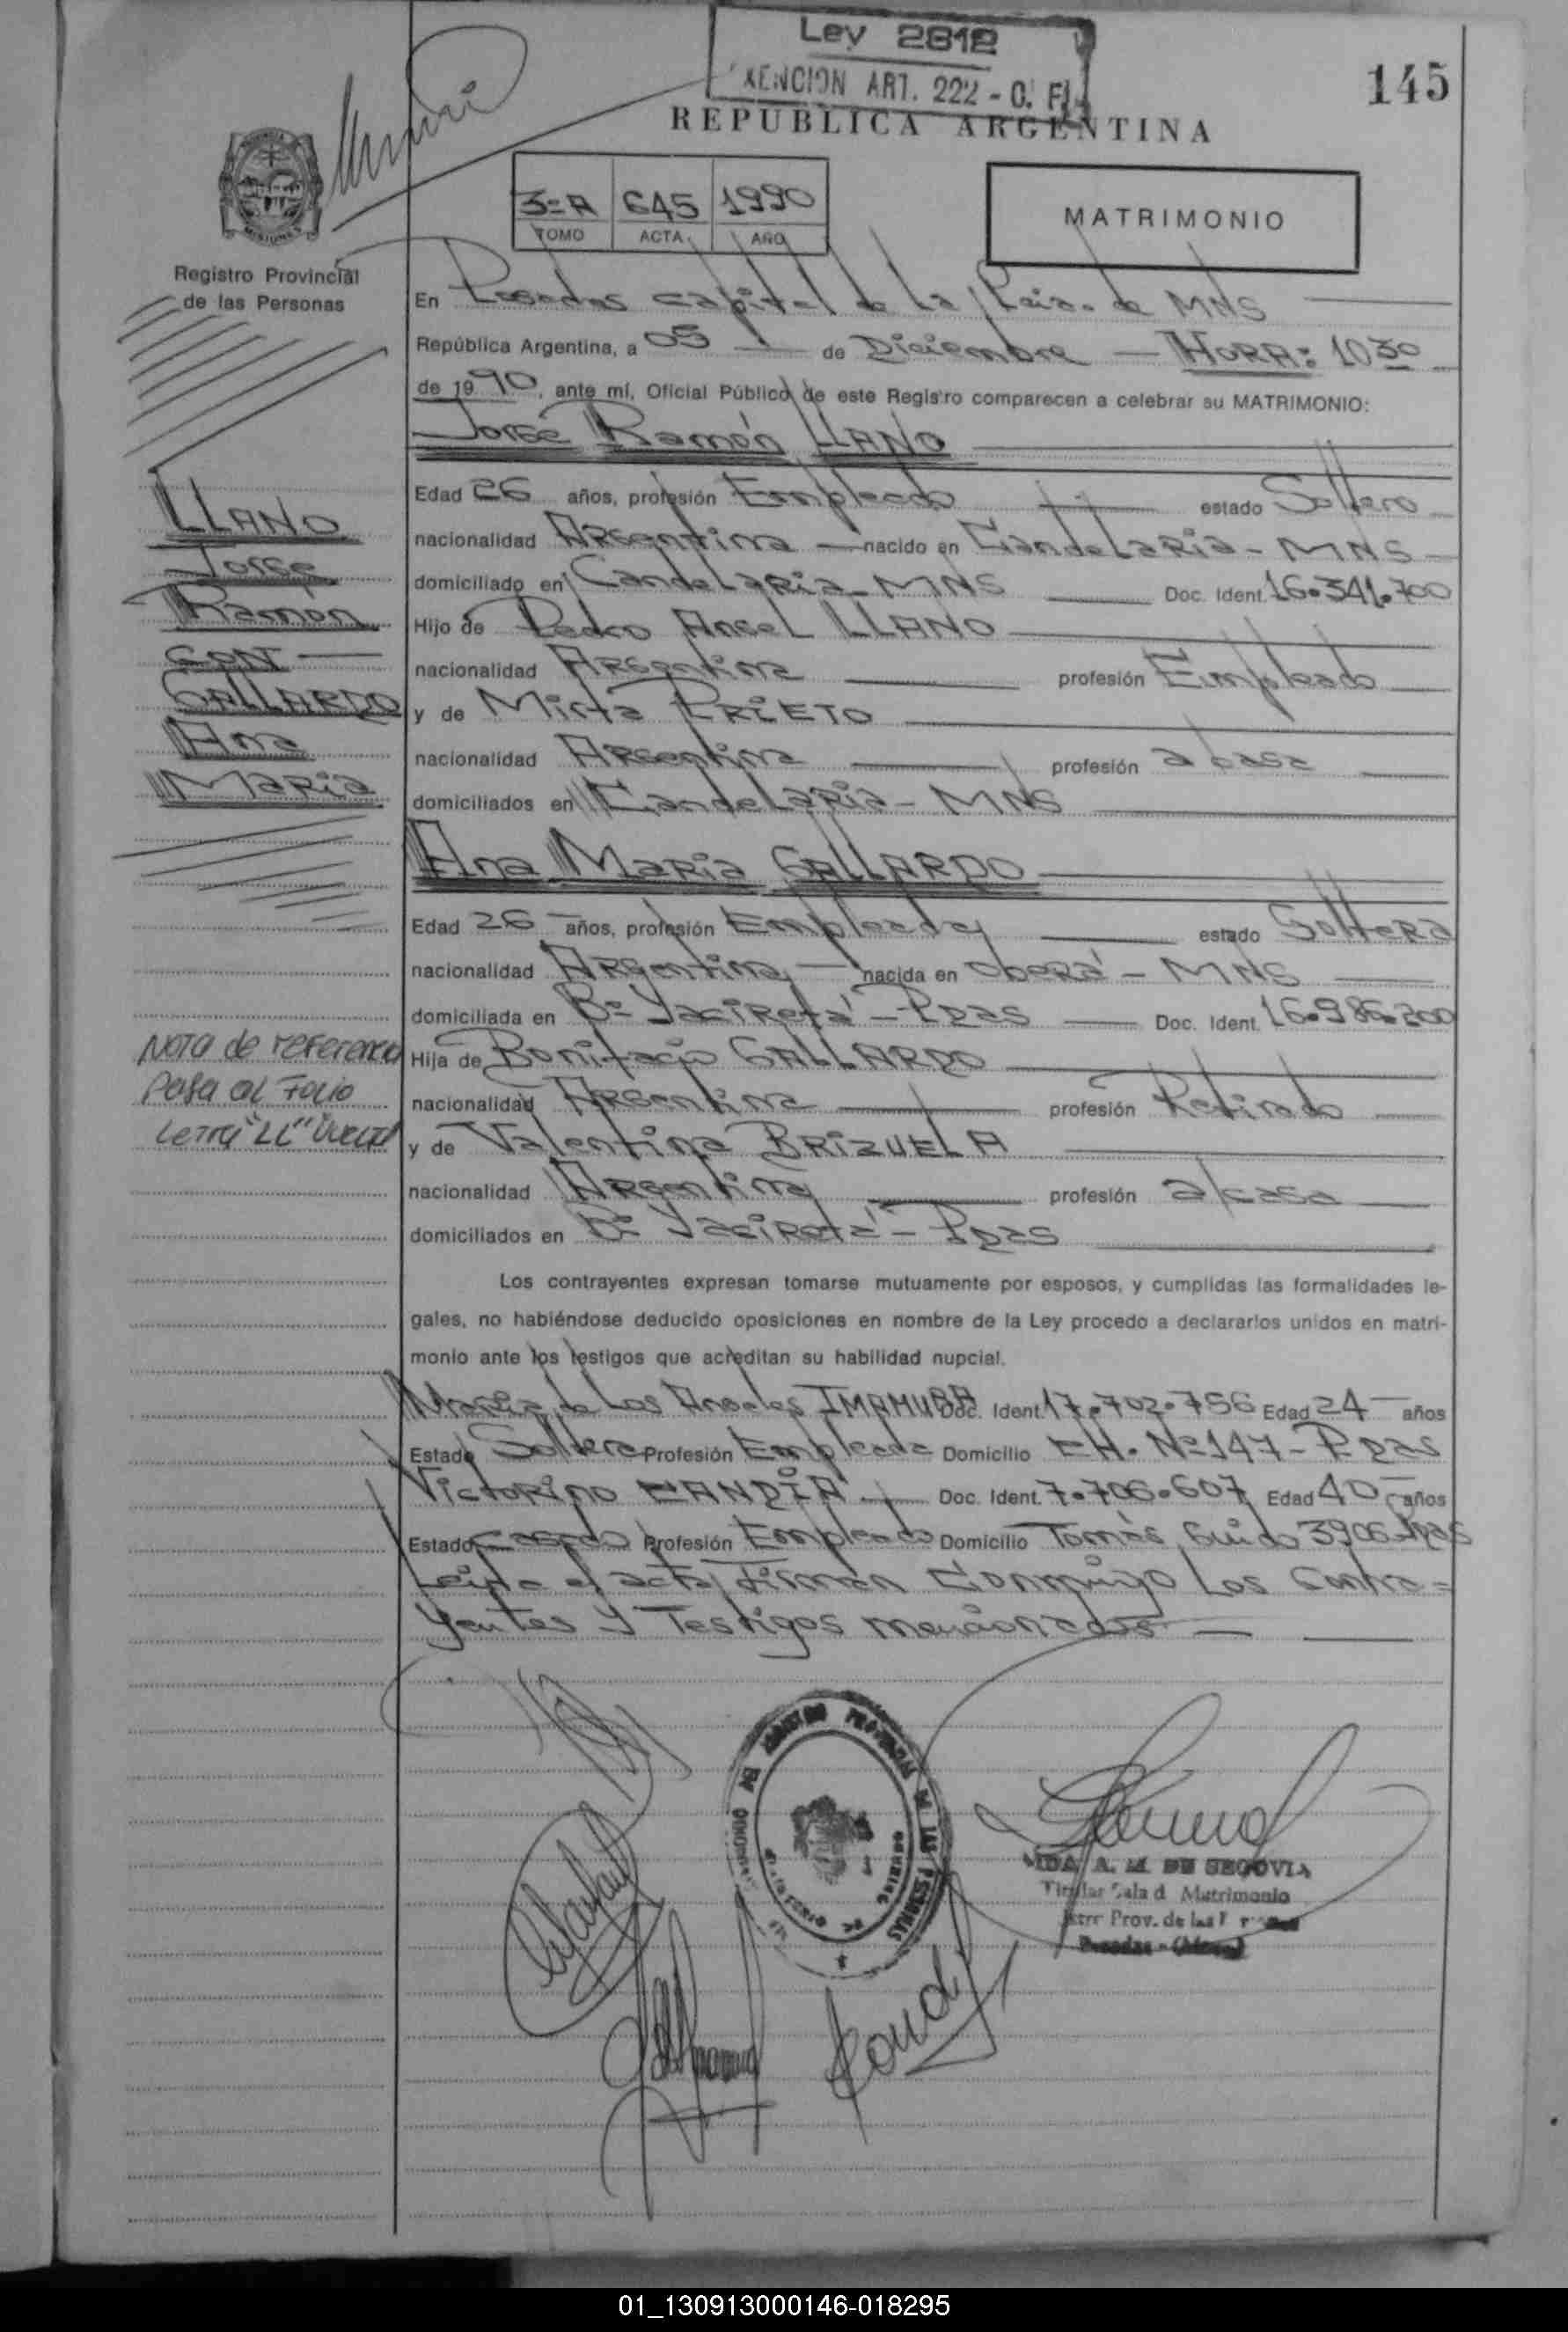 Ley 2812
XENCION ART. 222 - C. F.
145
REPUBLICA ARGENTINA
3=A 645 1990
TOMO ACTA AÑO
MATRIMONIO
MISIONES
Registro Provincial
de las Personas
En Posadas capital de la Pcia. de MNS
República Argentina, a 05 de Diciembre — HORA: 1030
de 1990, ante mí, Oficial Público de este Registro comparecen a celebrar su MATRIMONIO:
Jorge Ramón LLANO
Edad 26 años, profesión Empleado estado Soltero
nacionalidad Argentina nacido en Candelaria - MNS
domiciliado en Candelaria - MNS Doc. Ident. 16.341.700
Hijo de Pedro Angel LLANO
nacionalidad Argentina profesión Empleado
y de Mirta PRIETO
nacionalidad Argentina profesión a/casa
domiciliados en Candelaria - MNS
LLANO
Jorge
Ramón
CON
GALLARDO
Ana
Maria
Ana Maria GALLARDO
Edad 26 años, profesión Empleada estado Soltera
nacionalidad Argentina nacida en Oberá - MNS
domiciliada en Bº Yacireta - Pdas Doc. Ident. 16.986.200
Hija de Bonifacio GALLARDO
nacionalidad Argentina profesión Retirado
y de Valentina BRIZUELA
nacionalidad Argentina profesión a/casa
domiciliados en Bº Yacireta - Pdas
Nota de referencia
Pasa al Folio
Letra "LL" Vuelta
Los contrayentes expresan tomarse mutuamente por esposos, y cumplidas las formalidades le-
gales, no habiéndose deducido oposiciones en nombre de la Ley procedo a declararlos unidos en matri-
monio ante los testigos que acreditan su habilidad nupcial.
Maria de Los Angeles IMAMURA Doc. Ident. 17.702.756 Edad 24 años
Estado Soltera Profesión Empleada Domicilio CH. Nº 147 - Pdas
Victorino CANDIA Doc. Ident. 7.706.607 Edad 40 años
Estado casado Profesión Empleado Domicilio Tomás Guido 3906 - Pdas
Leida el acta, Firman Conmigo Los Contra=
yentes y Testigos mencionados
REGISTRO PROVINCIAL DE LAS PERSONAS
A. M. DE SEGOVIA
Titular Sala d Matrimonio
Prov. de las
Posadas -
01_130913000146-018295